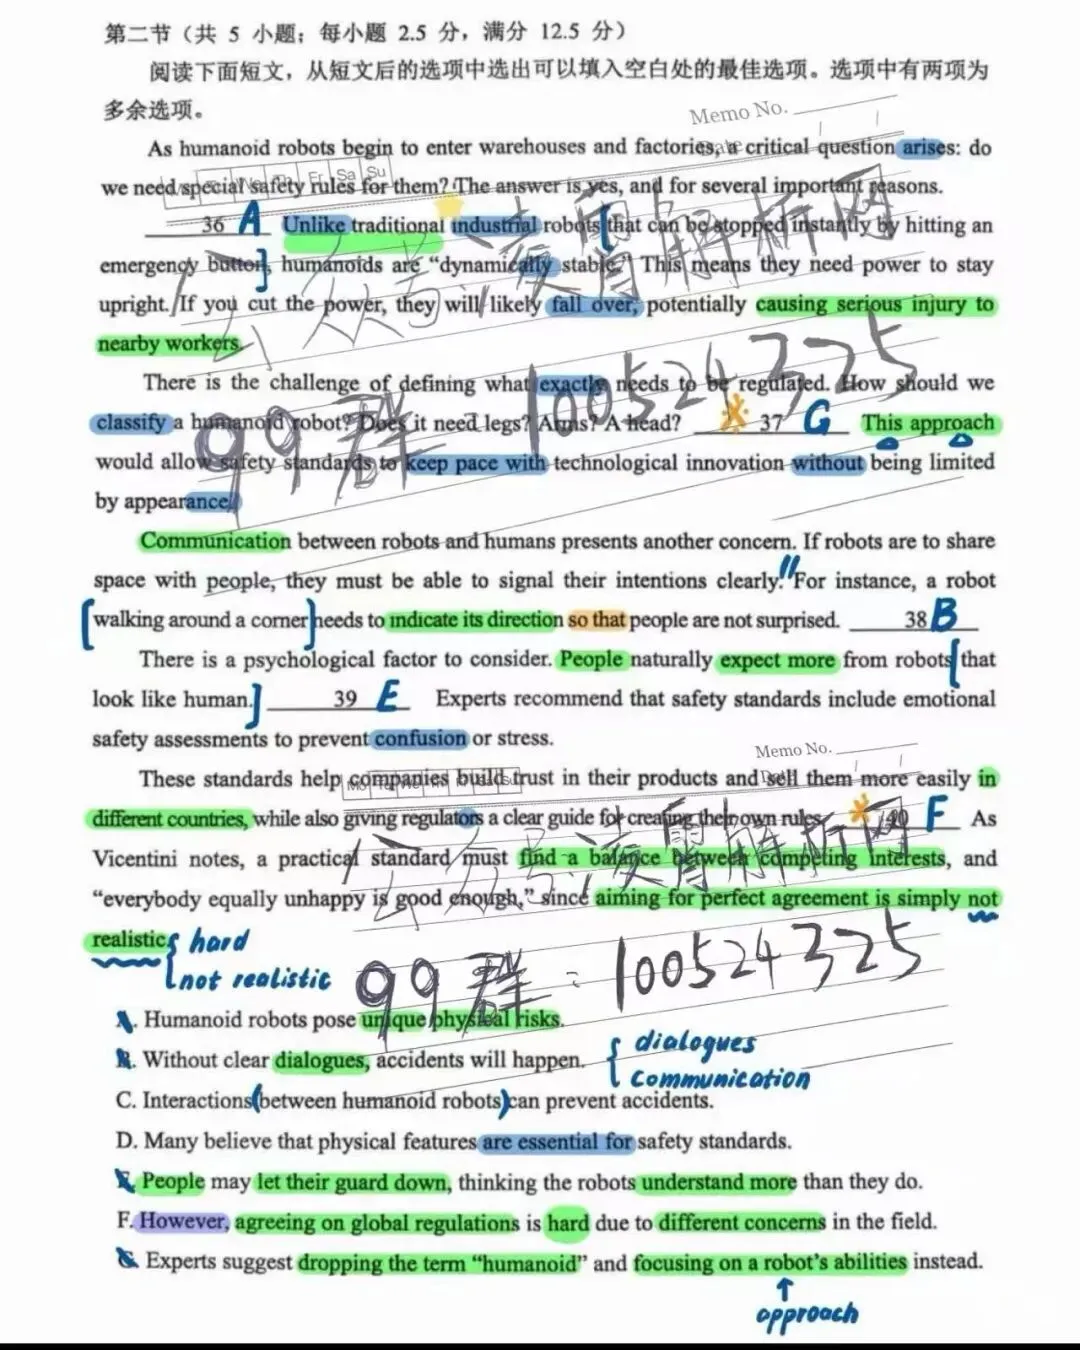 第二节（共 5 小题；每小题 2.5 分，满分 12.5 分）
阅读下面短文，从短文后的选项中选出可以填入空白处的最佳选项。选项中有两项为
多余选项。
Memo No.
As humanoid robots begin to enter warehouses and factories, a critical question arises: do
we need special safety rules for them? The answer is yes, and for several important reasons.
36 A Unlike traditional industrial robots that can be stopped instantly by hitting an
emergency button, humanoids are “dynamically stable.” This means they need power to stay
upright. If you cut the power, they will likely fall over, potentially causing serious injury to
nearby workers.
There is the challenge of defining what exactly needs to be regulated. How should we
classify a humanoid robot? Does it need legs? Arms? A head? 37 G This approach
would allow safety standards to keep pace with technological innovation without being limited
by appearance.
Communication between robots and humans presents another concern. If robots are to share
space with people, they must be able to signal their intentions clearly. For instance, a robot
walking around a corner needs to indicate its direction so that people are not surprised. 38 B
There is a psychological factor to consider. People naturally expect more from robots that
look like human. 39 E Experts recommend that safety standards include emotional
safety assessments to prevent confusion or stress.
Memo No.
These standards help companies build trust in their products and sell them more easily in
different countries, while also giving regulators a clear guide for creating their own rules. 40 F As
Vicentini notes, a practical standard must find a balance between competing interests, and
“everybody equally unhappy is good enough,” since aiming for perfect agreement is simply not
realistic. hard
not realistic
99群：100524325
A. Humanoid robots pose unique physical risks.
B. Without clear dialogues, accidents will happen. dialogues
communication
C. Interactions between humanoid robots can prevent accidents.
D. Many believe that physical features are essential for safety standards.
E. People may let their guard down, thinking the robots understand more than they do.
F. However, agreeing on global regulations is hard due to different concerns in the field.
G. Experts suggest dropping the term “humanoid” and focusing on a robot’s abilities instead.
approach